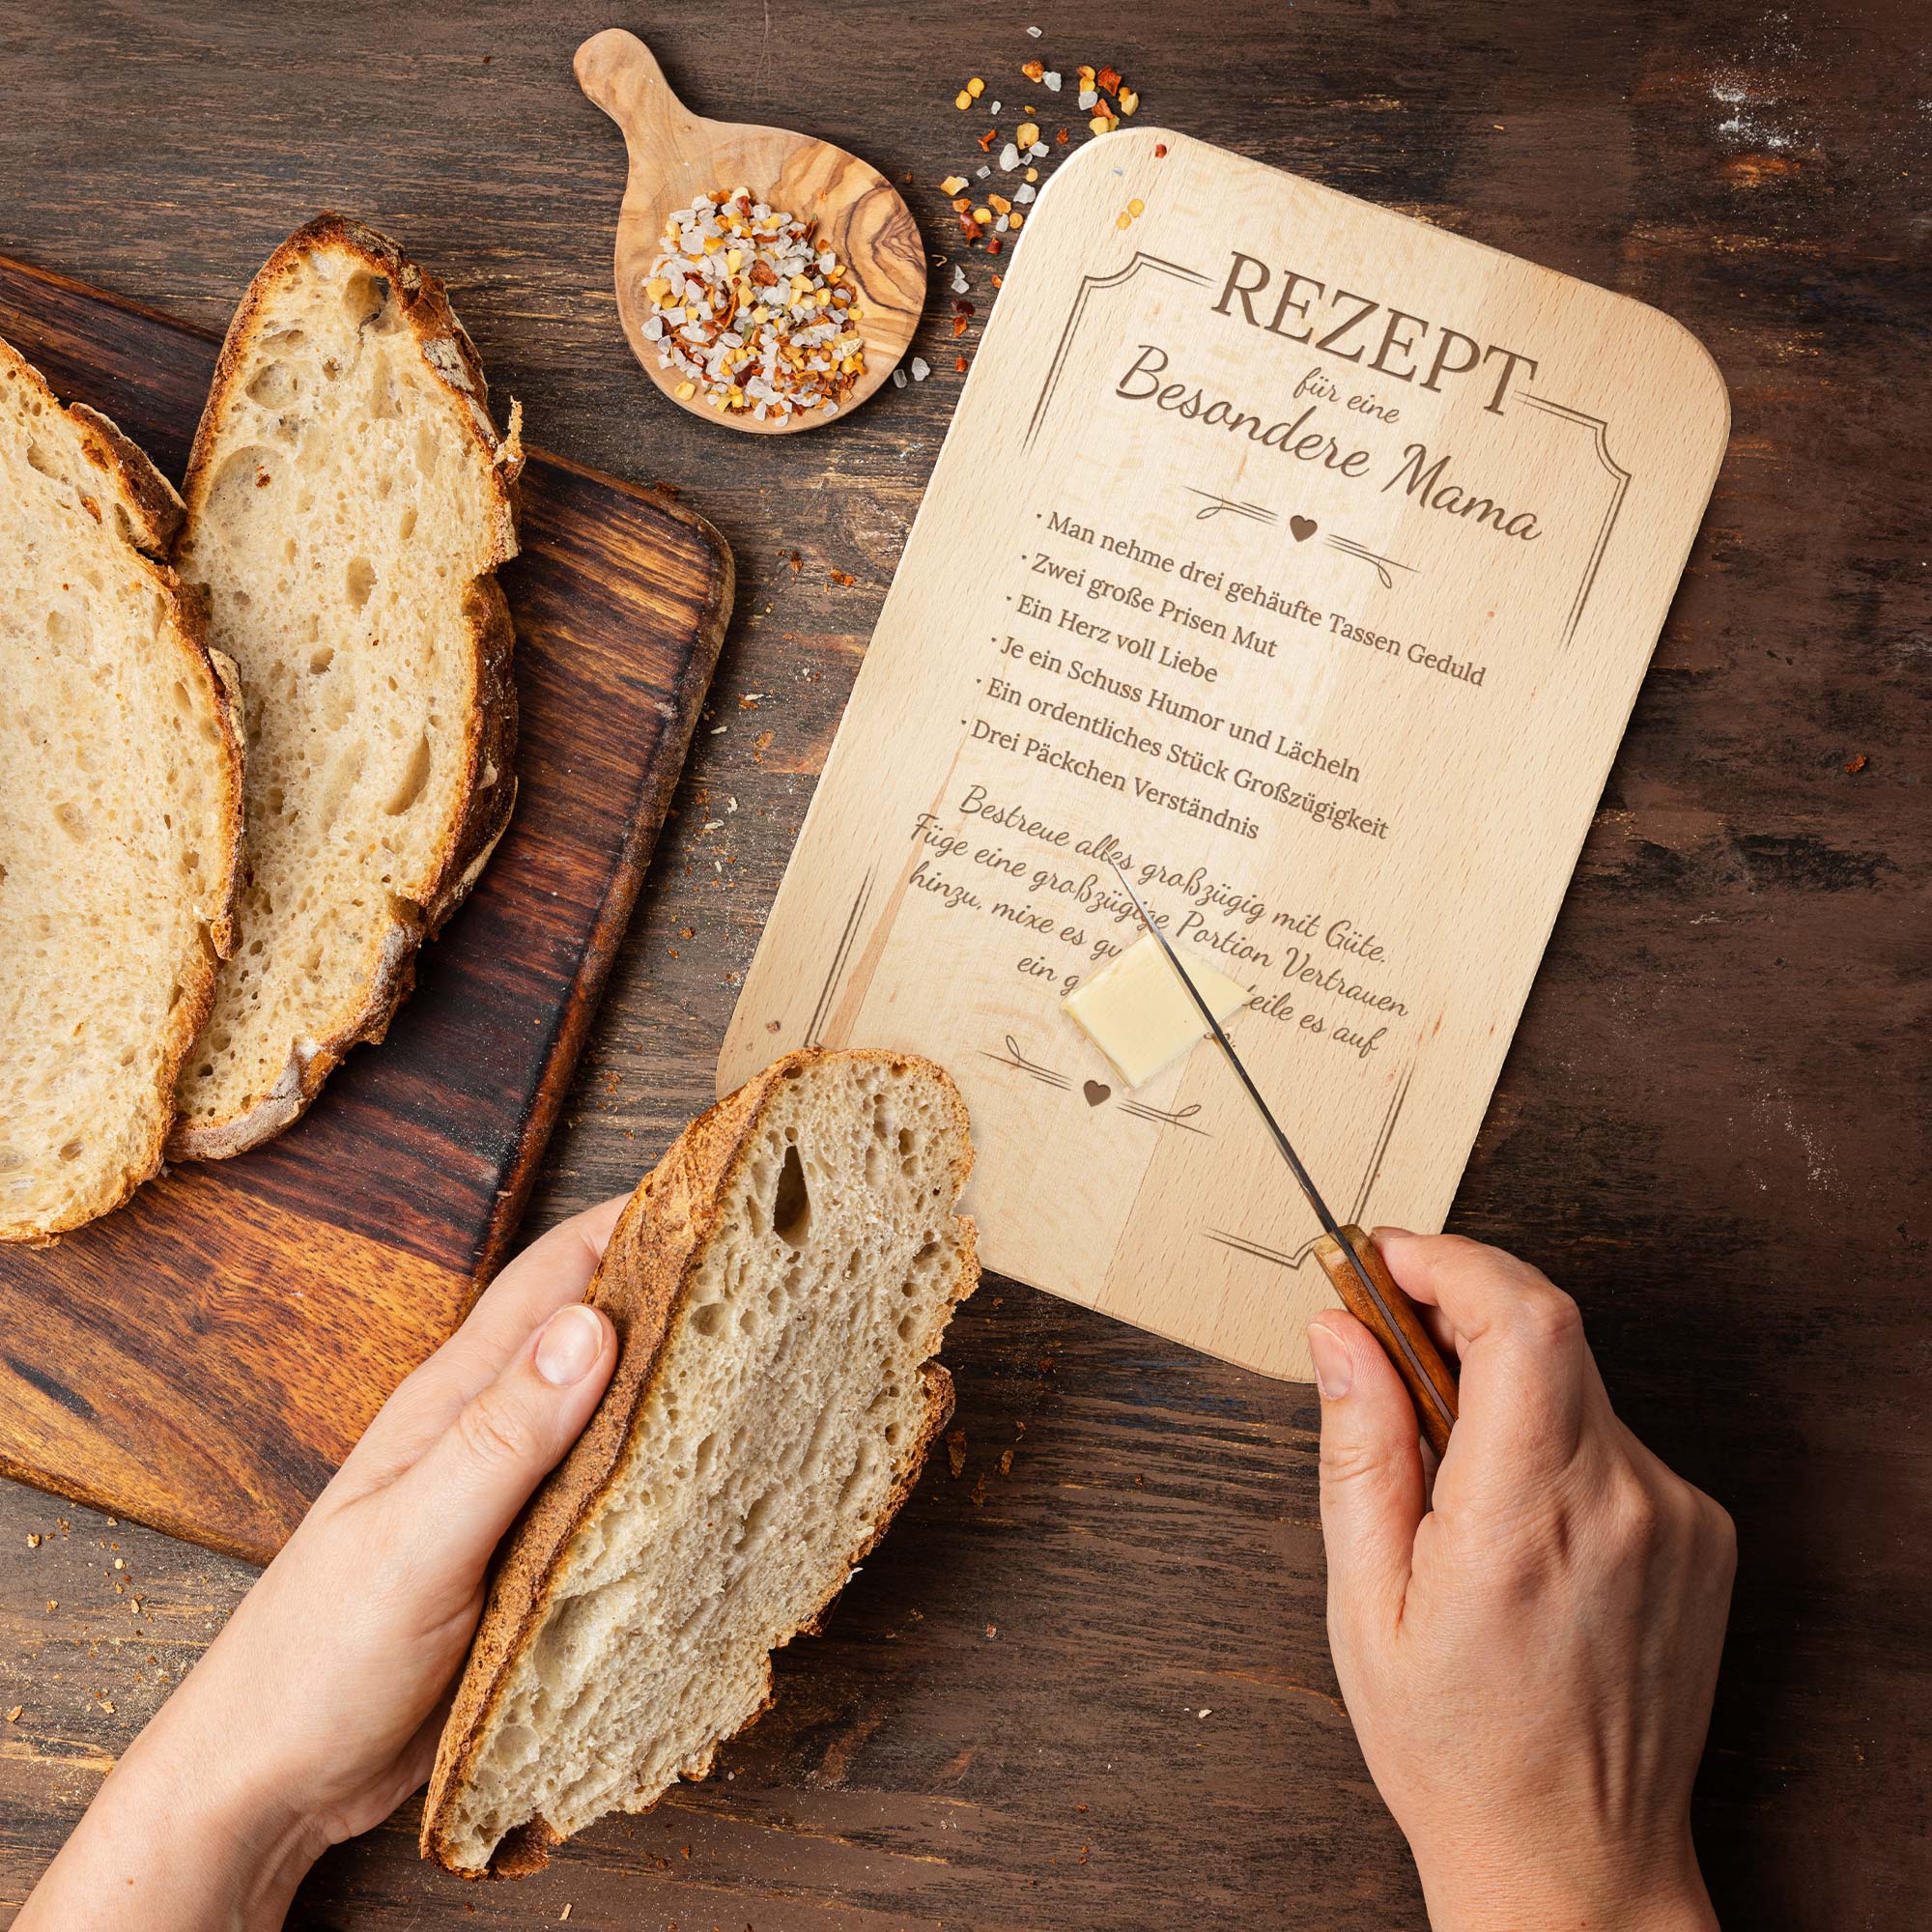 REZEPT
für eine
Besondere Mama
· Man nehme drei gehäufte Tassen Geduld
· Zwei große Prisen Mut
· Ein Herz voll Liebe
· Je ein Schuss Humor und Lächeln
· Ein ordentliches Stück Großzügigkeit
· Drei Päckchen Verständnis
Bestreue alles großzügig mit Güte.
Füge eine großzügige Portion Vertrauen
hinzu, mixe es
ein es auf